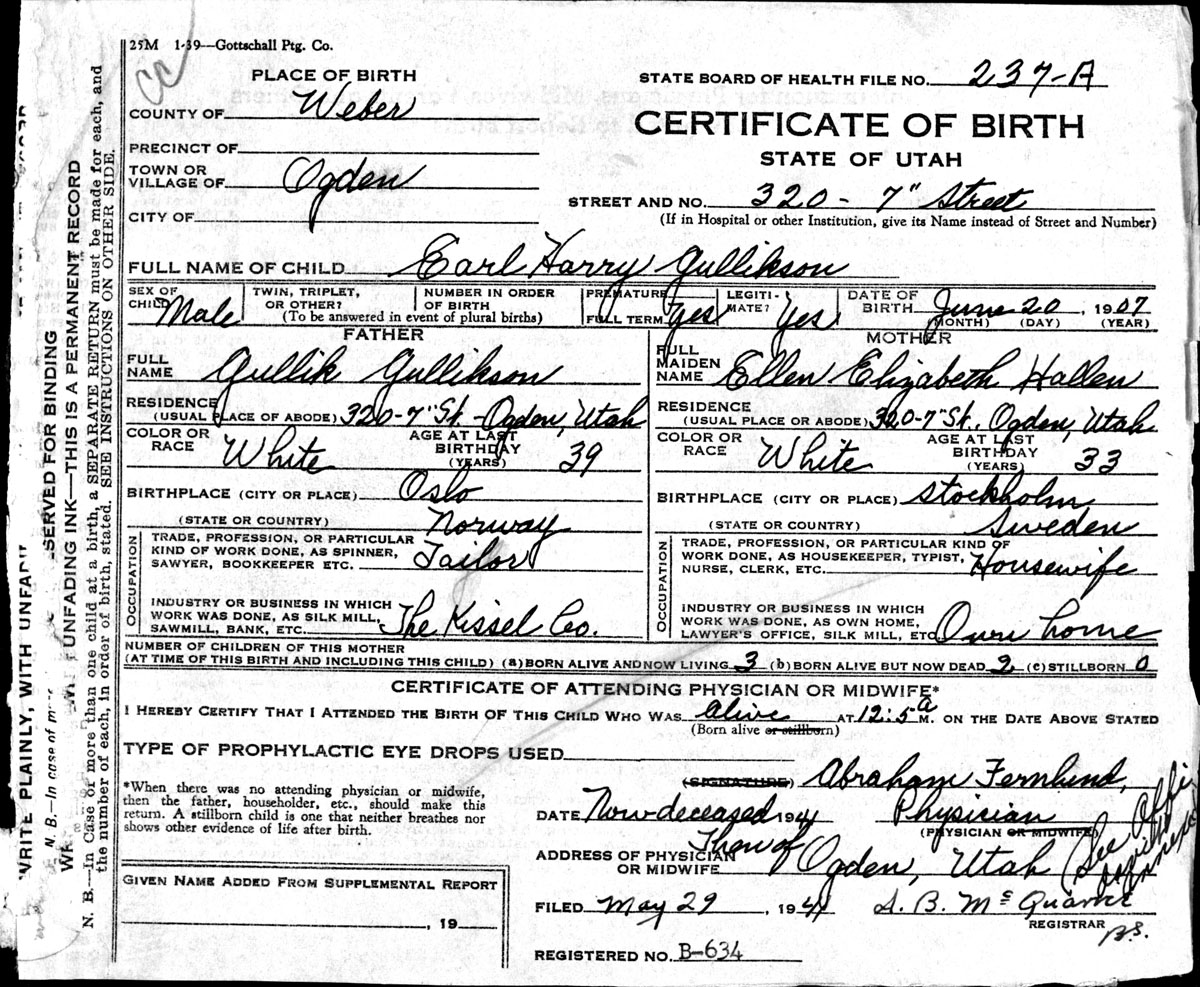 25M 1-39—Gottschall Ptg. Co.
CC
PLACE OF BIRTH
COUNTY OF Weber
PRECINCT OF
TOWN OR
VILLAGE OF Ogden
CITY OF
STATE BOARD OF HEALTH FILE NO. 237-A
CERTIFICATE OF BIRTH
STATE OF UTAH
STREET AND NO. 320 - 7" Street
(If in Hospital or other Institution, give its Name instead of Street and Number)
FULL NAME OF CHILD Earl Harry Gullikson
SEX OF CHILD Male
TWIN, TRIPLET, OR OTHER?
NUMBER IN ORDER OF BIRTH
(To be answered in event of plural births)
PREMATURE
FULL TERM yes
LEGITI-MATE? Yes
DATE OF BIRTH June 20, 1907
(MONTH) (DAY) (YEAR)
FATHER
FULL NAME Gullik Gullikson
RESIDENCE
(USUAL PLACE OF ABODE) 320-7" St. - Ogden, Utah
COLOR OR RACE White
AGE AT LAST BIRTHDAY (YEARS) 39
BIRTHPLACE (CITY OR PLACE) Oslo
(STATE OR COUNTRY) Norway
OCCUPATION
TRADE, PROFESSION, OR PARTICULAR
KIND OF WORK DONE, AS SPINNER,
SAWYER, BOOKKEEPER ETC. Tailor
INDUSTRY OR BUSINESS IN WHICH
WORK WAS DONE, AS SILK MILL,
SAWMILL, BANK, ETC. The Kissel Co.
MOTHER
FULL MAIDEN NAME Ellen Elizabeth Hallen
RESIDENCE
(USUAL PLACE OR ABODE) 320-7" St., Ogden, Utah
COLOR OR RACE White
AGE AT LAST BIRTHDAY (YEARS) 33
BIRTHPLACE (CITY OR PLACE) Stockholm
(STATE OR COUNTRY) Sweden
OCCUPATION
TRADE, PROFESSION, OR PARTICULAR KIND OF
WORK DONE, AS HOUSEKEEPER, TYPIST,
NURSE, CLERK, ETC. Housewife
INDUSTRY OR BUSINESS IN WHICH
WORK WAS DONE, AS OWN HOME,
LAWYER'S OFFICE, SILK MILL, ETC Own home
NUMBER OF CHILDREN OF THIS MOTHER
(AT TIME OF THIS BIRTH AND INCLUDING THIS CHILD) (a) BORN ALIVE AND NOW LIVING 3 (b) BORN ALIVE BUT NOW DEAD 2 (c) STILLBORN 0
CERTIFICATE OF ATTENDING PHYSICIAN OR MIDWIFE*
I HEREBY CERTIFY THAT I ATTENDED THE BIRTH OF THIS CHILD WHO WAS Alive AT 12:5 A M. ON THE DATE ABOVE STATED
(Born alive or stillborn)
TYPE OF PROPHYLACTIC EYE DROPS USED
*When there was no attending physician or midwife,
then the father, householder, etc., should make this
return. A stillborn child is one that neither breathes nor
shows other evidence of life after birth.
(SIGNATURE) Abraham Fernlund,
DATE Now deceased 1941 Physician
(PHYSICIAN OR MIDWIFE)
Then of
ADDRESS OF PHYSICIAN OR MIDWIFE Ogden, Utah
(See
GIVEN NAME ADDED FROM SUPPLEMENTAL REPORT
, 19
FILED May 29, 1941
REGISTRAR
B.S.
REGISTERED NO. B-634
WRITE PLAINLY, WITH
N. B.—In case of
SERVED FOR BINDING
UNFADING INK—THIS IS A PERMANENT RECORD
N. B.—In Case of more than one child at a birth, a SEPARATE RETURN must be made for each, and
the number of each, in order of birth, stated. SEE INSTRUCTIONS ON OTHER SIDE.